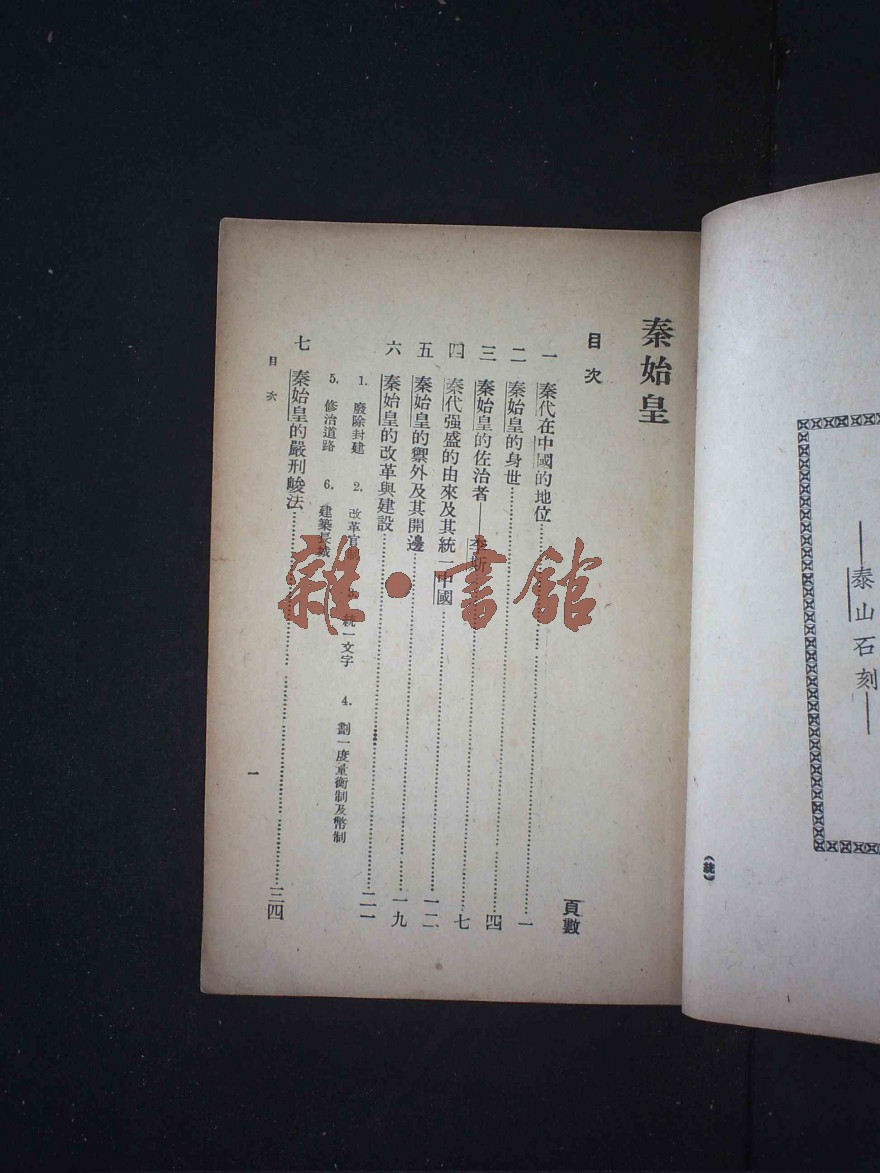 ——泰山石刻——
(統)
秦始皇
目次
頁數
一 秦代在中國的地位……一
二 秦始皇的身世……四
三 秦始皇的佐治者——李斯……七
四 秦代强盛的由來及其統一中國……一二
五 秦始皇的禦外及其開邊……一九
六 秦始皇的改革與建設……二一
1. 廢除封建 2. 改革官制 3. 統一文字 4. 劃一度量衡制及幣制
5. 修治道路 6. 建築長城
七 秦始皇的嚴刑峻法……三四
目次
一
雜·書館